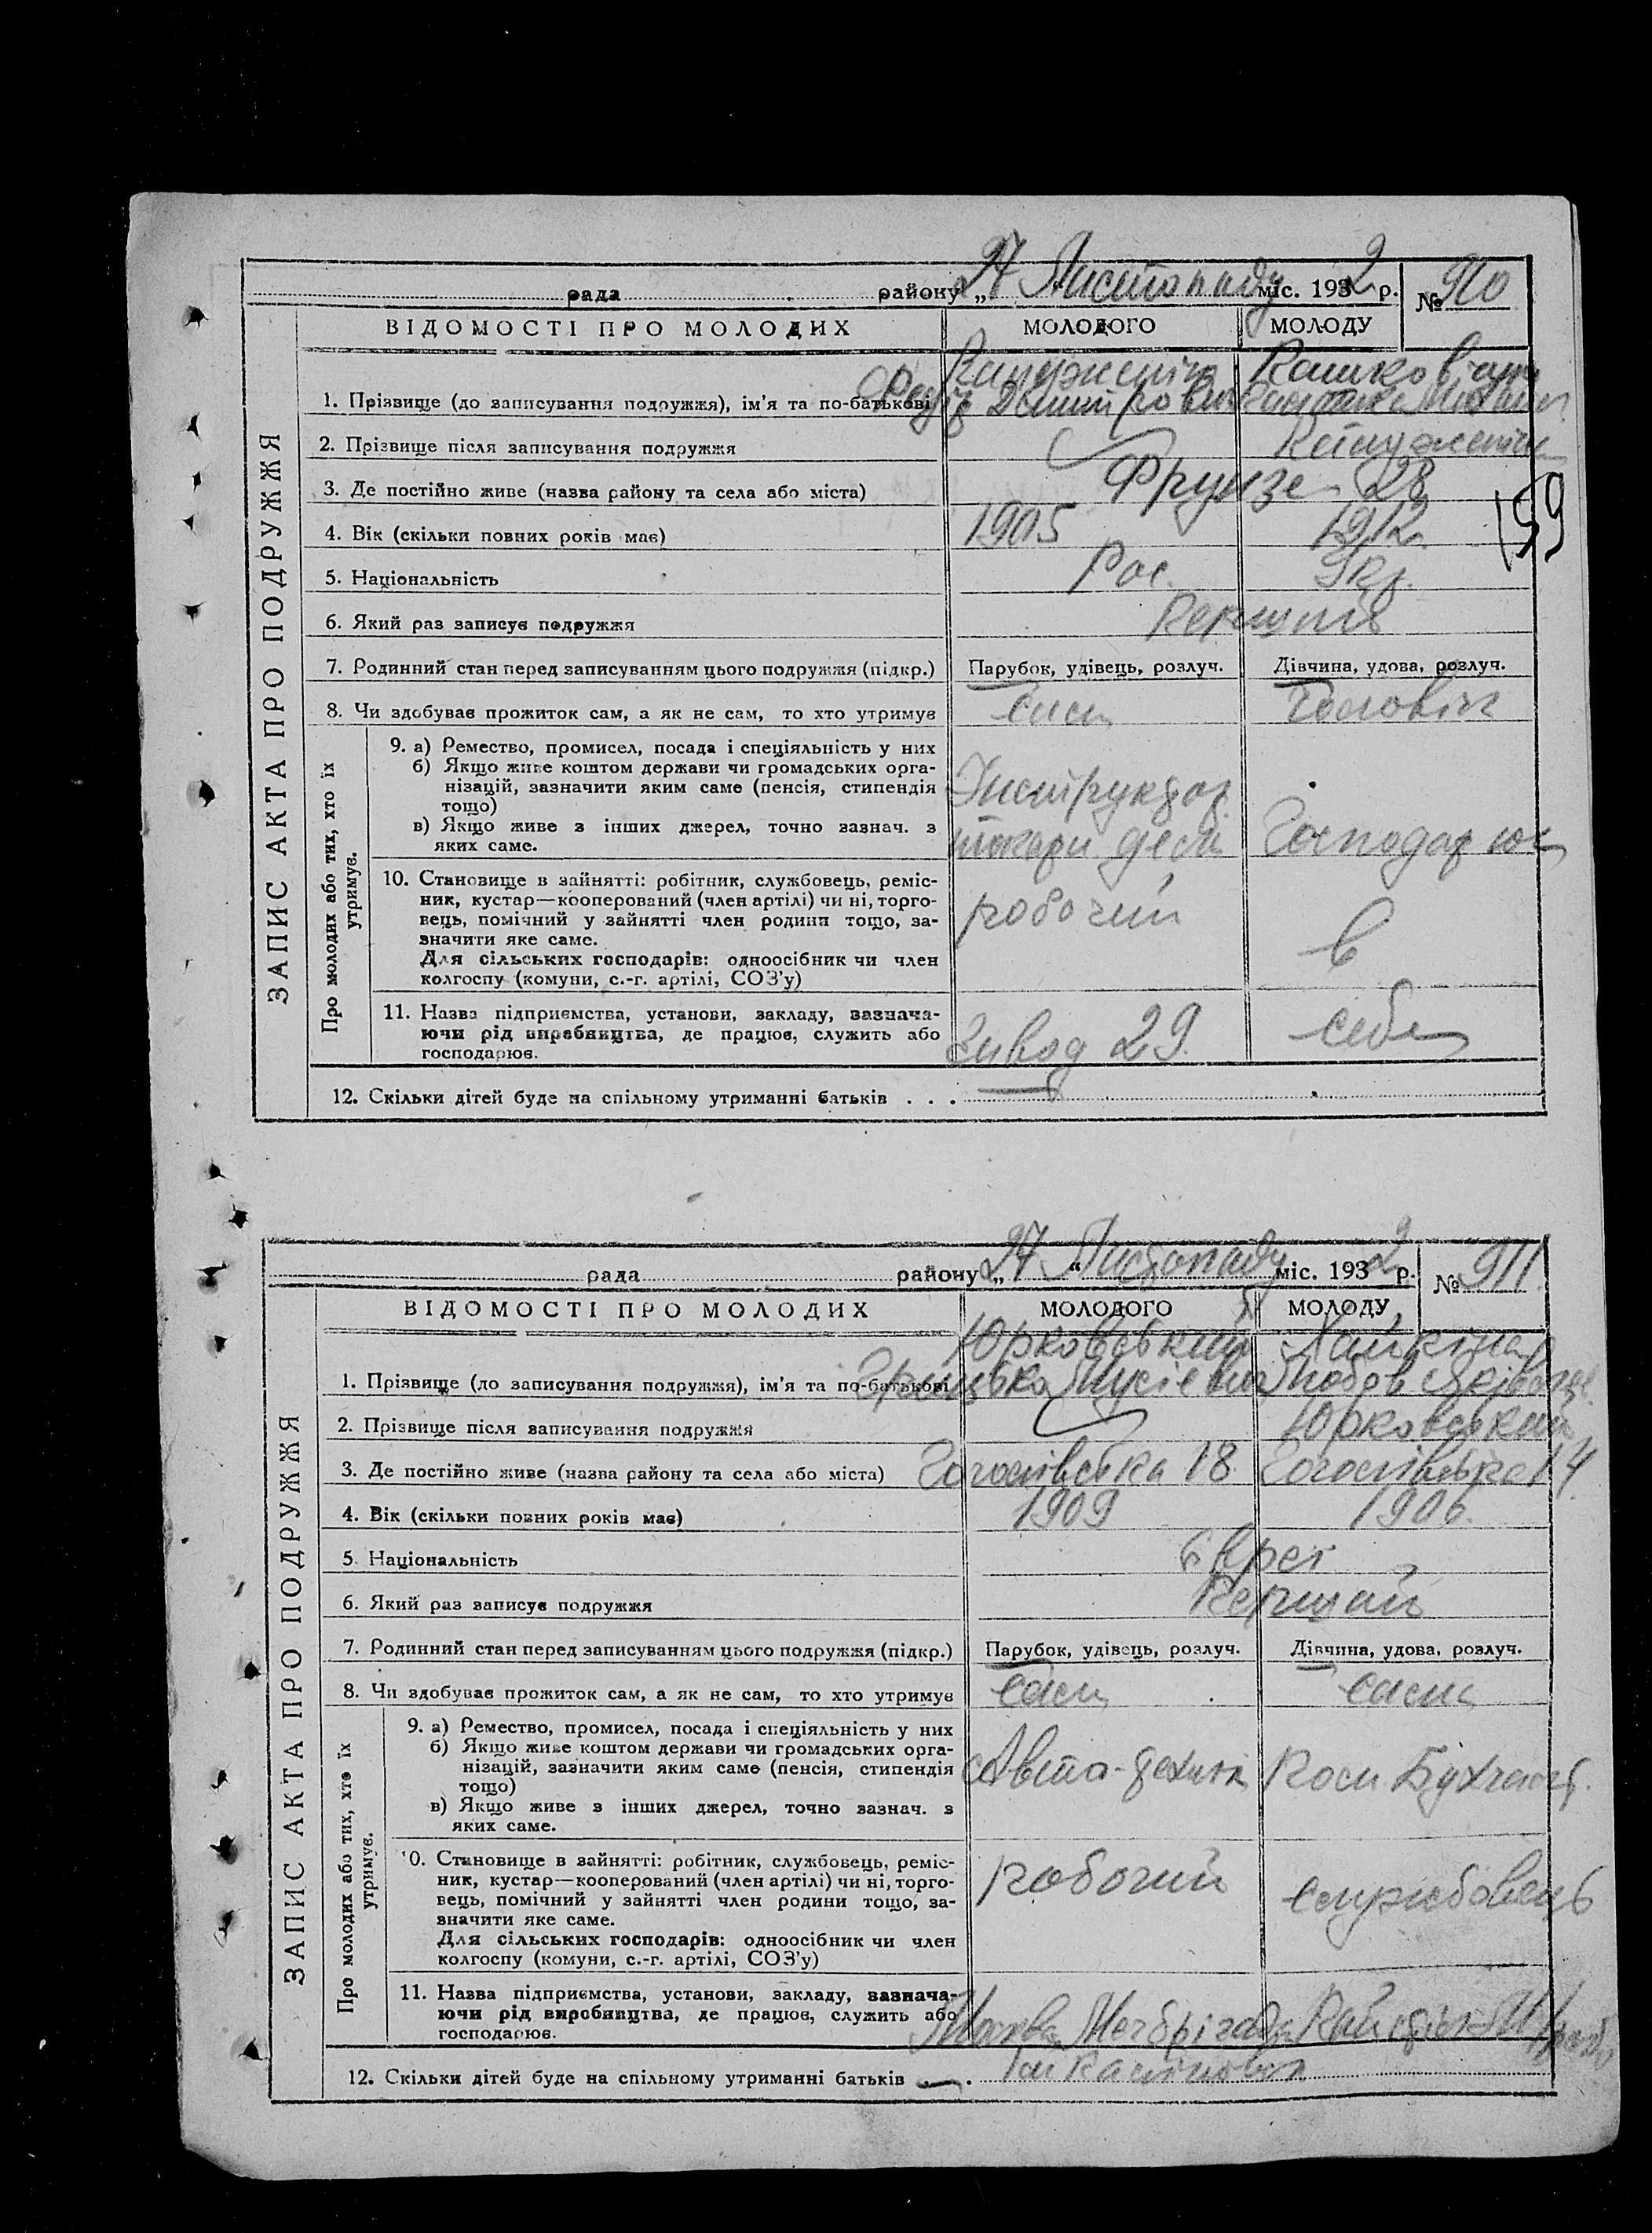 рада району „27 Листопаду міс. 1932 р. № 910
ЗАПИС АКТА ПРО ПОДРУЖЖЯ
ВІДОМОСТІ ПРО МОЛОДИХ МОЛОДОГО МОЛОДУ
1. Прізвище (до записування подружжя), ім’я та по-батькові
2. Прізвище після записування подружжя
3. Де постійно живе (назва району та села або міста) Фрунзе 28
159
4. Вік (скільки повних років має) 1905 1912
5. Національність Рос. Укр.
6. Який раз записує подружжя Перший
7. Родинний стан перед записуванням цього подружжя (підкр.) Парубок, удівець, розлуч. Дівчина, удова, розлуч.
8. Чи здобував прожиток сам, а як не сам, то хто утримує сам Чоловік
Про молодих або тих, хто їх утримує.
9. а) Ремество, промисел, посада і спеціяльність у них
б) Якщо живе коштом держави чи громадських орга-
нізацій, зазначити яким саме (пенсія, стипендія
тощо)
в) Якщо живе з інших джерел, точно зазнач. з
яких саме.
Інструктор
Господарює
10. Становище в зайнятті: робітник, службовець, реміс-
ник, кустар—кооперований (член артілі) чи ні, торго-
вець, помічний у зайнятті член родини тощо, за-
значити яке саме.
Для сільських господарів: одноосібник чи член
колгоспу (комуни, с.-г. артілі, СОЗ’у)
робочий
в
11. Назва підприємства, установи, закладу, зазнача-
ючи рід виробництва, де працює, служить або
господарює.
Завод 29.
себе
12. Скільки дітей буде на спільному утриманні батьків . . .
рада району „27“ Листопаду міс. 1932 р. № 911
ЗАПИС АКТА ПРО ПОДРУЖЖЯ
ВІДОМОСТІ ПРО МОЛОДИХ МОЛОДОГО МОЛОДУ
Юрковський Хайкіна
1. Прізвище (до записування подружжя), ім’я та по-батькові Грицько Мусієвич Любов Яківна
2. Прізвище після записування подружжя Юрковський
3. Де постійно живе (назва району та села або міста) Гоголівська 18 Гоголівська 14
4. Вік (скільки повних років має) 1909 1906
5. Національність Євреї
6. Який раз записує подружжя Перший
7. Родинний стан перед записуванням цього подружжя (підкр.) Парубок, удівець, розлуч. Дівчина, удова, розлуч.
8. Чи здобував прожиток сам, а як не сам, то хто утримує сам сама
Про молодих або тих, хто їх утримує.
9. а) Ремество, промисел, посада і спеціяльність у них
б) Якщо живе коштом держави чи громадських орга-
нізацій, зазначити яким саме (пенсія, стипендія
тощо)
в) Якщо живе з інших джерел, точно зазнач. з
яких саме.
Авто-технік
Пом. Бухгалт.
10. Становище в зайнятті: робітник, службовець, реміс-
ник, кустар—кооперований (член артілі) чи ні, торго-
вець, помічний у зайнятті член родини тощо, за-
значити яке саме.
Для сільських господарів: одноосібник чи член
колгоспу (комуни, с.-г. артілі, СОЗ’у)
робочий
службовець
11. Назва підприємства, установи, закладу, зазнача-
ючи рід виробництва, де працює, служить або
господарює.
Москва
12. Скільки дітей буде на спільному утриманні батьків . .